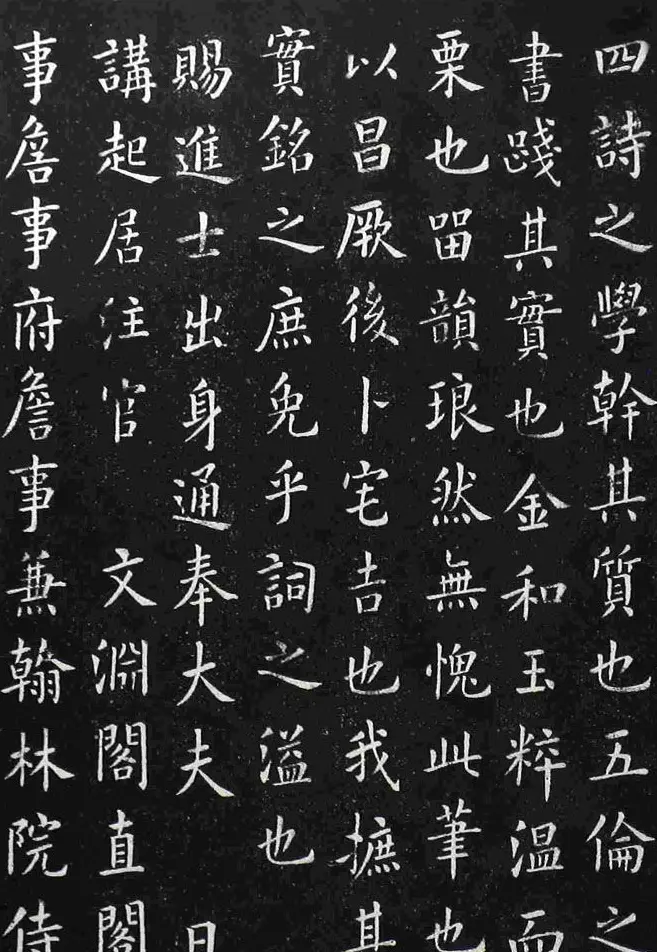 四詩之學幹其質也五倫之
書踐其實也金和玉粹温而
栗也畱韻琅然無愧此筆也
以昌厥後卜宅吉也我摭其
實銘之庶免乎詞之溢也
賜進士出身通奉大夫 日
講起居注官 文淵閣直閣
事詹事府詹事兼翰林院侍